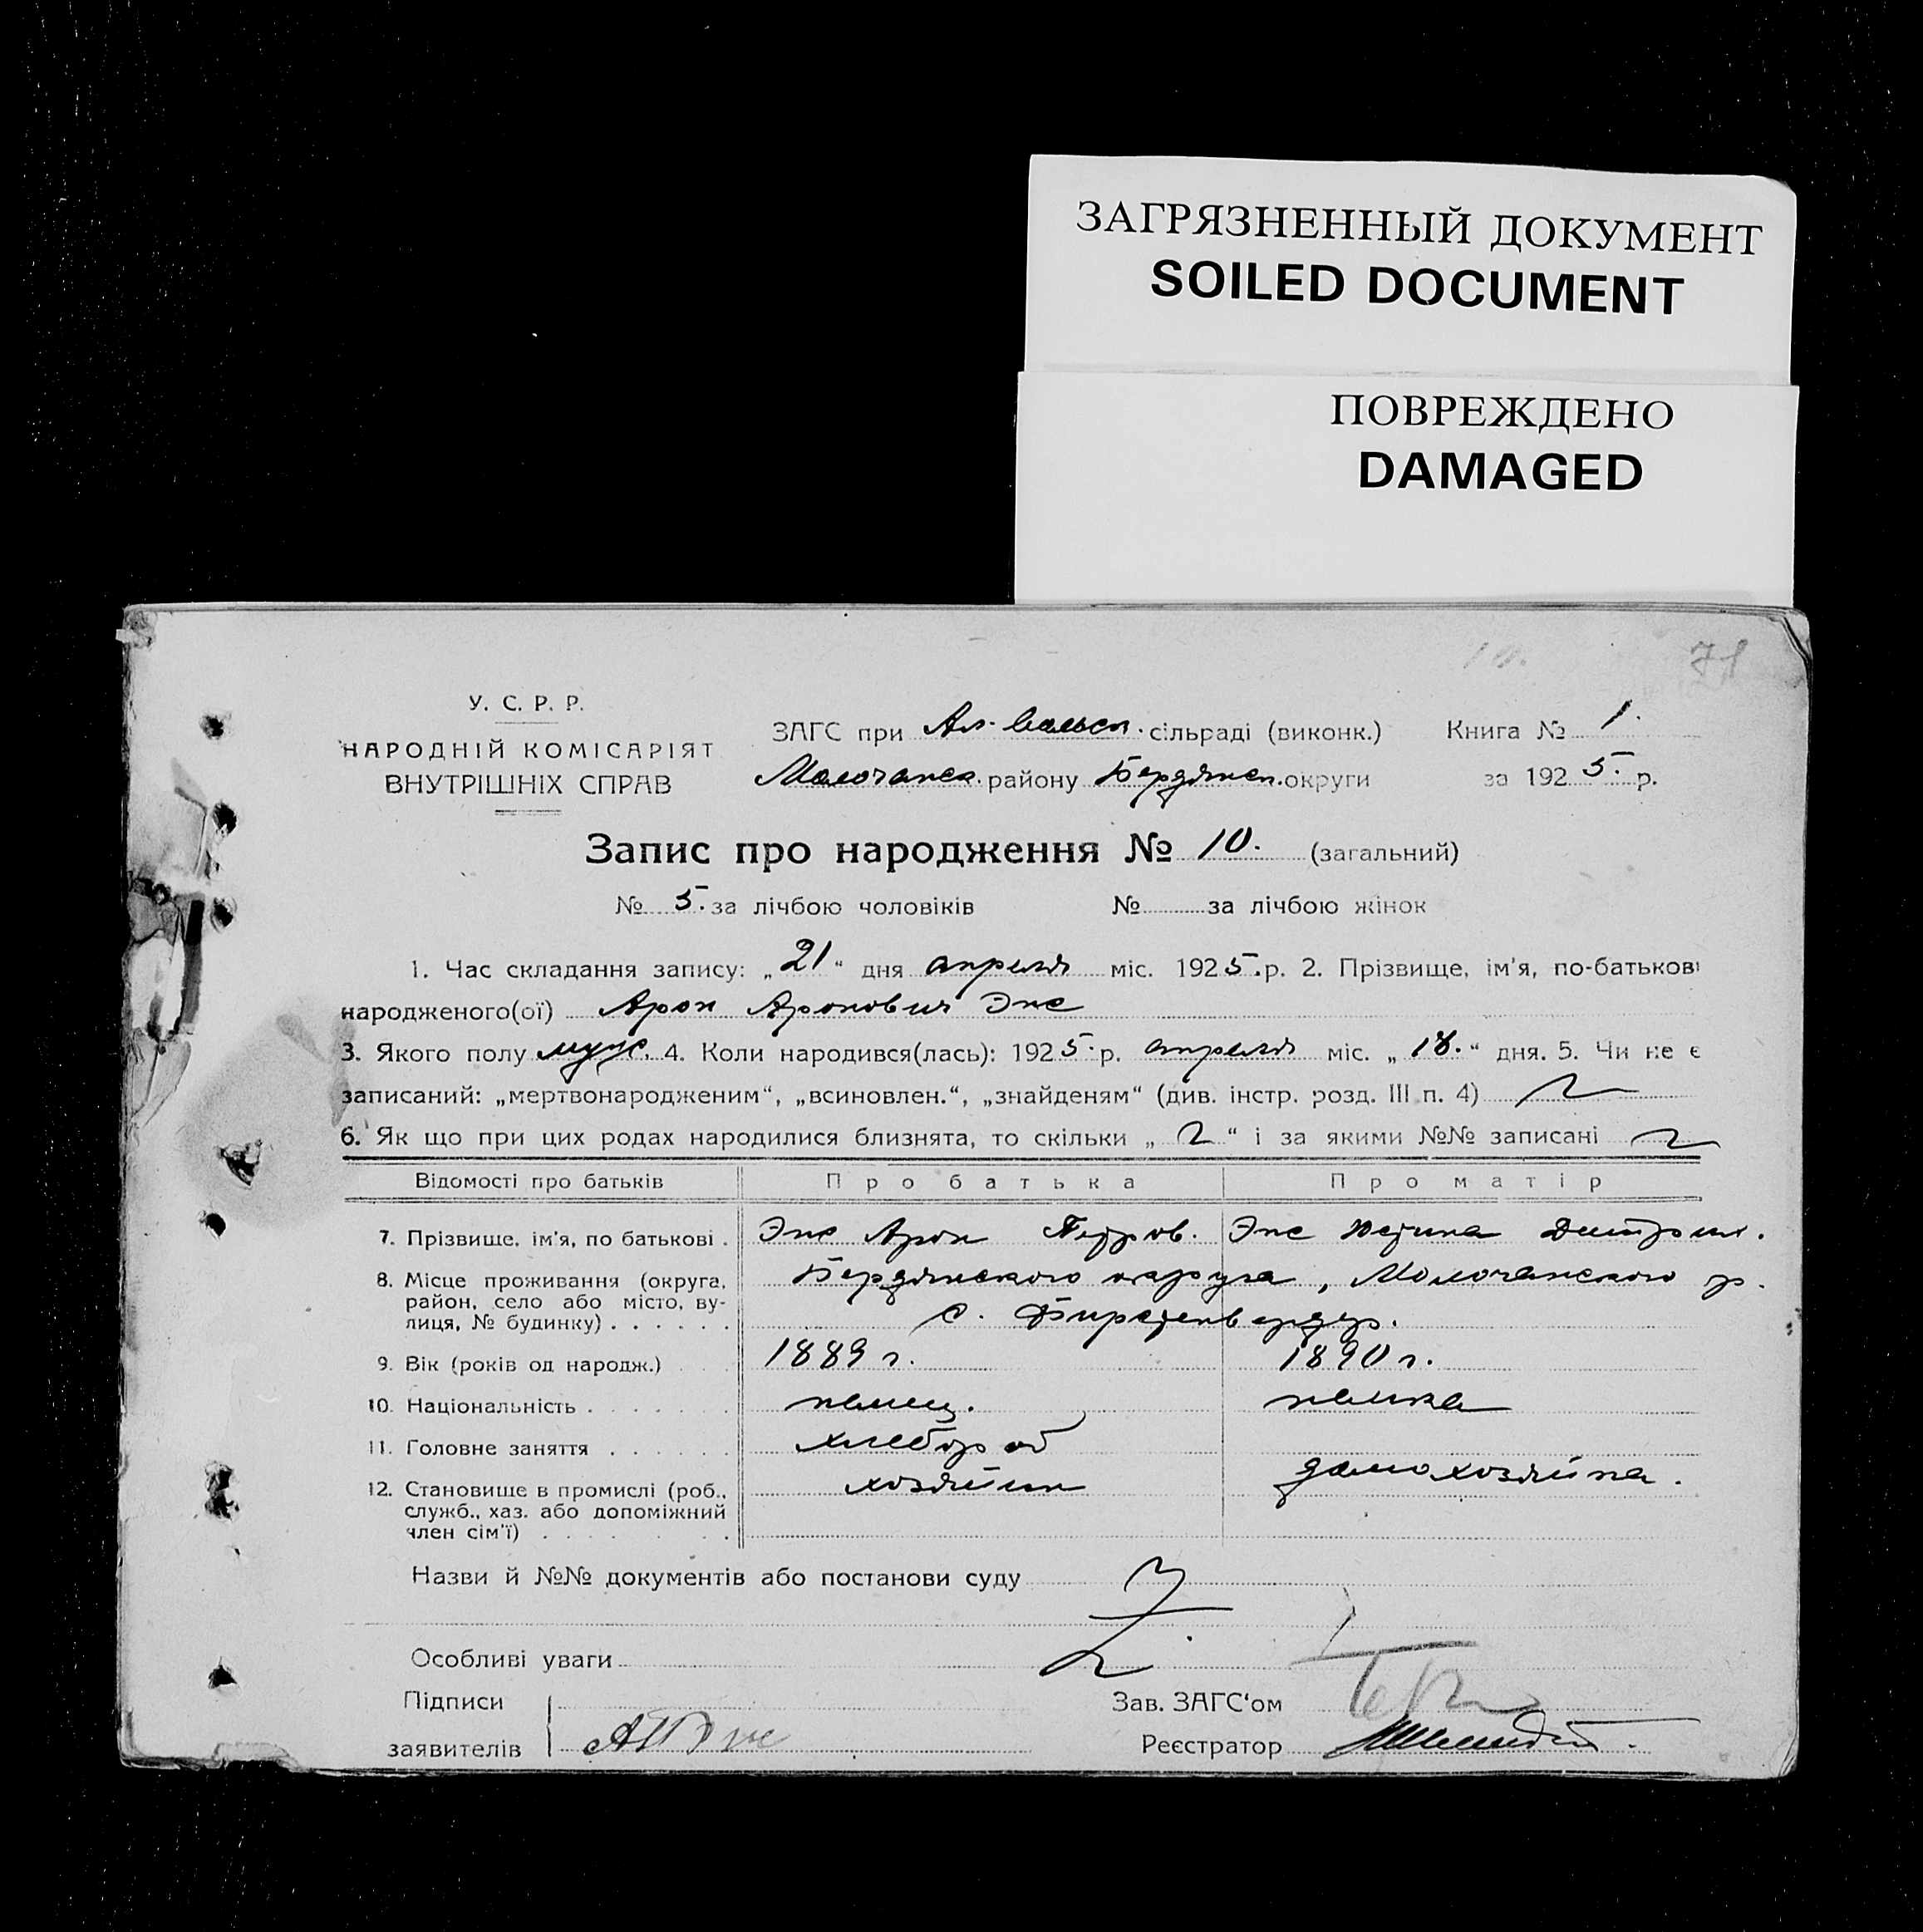 ЗАГРЯЗНЕННЫЙ ДОКУМЕНТ
SOILED DOCUMENT
ПОВРЕЖДЕНО
DAMAGED
10. 71
У. С. Р. Р.
НАРОДНІЙ КОМІСАРІЯТ
ВНУТРІШНІХ СПРАВ
ЗАГС при Ал-Вальск. сільраді (виконк.) Книга № 1.
Молочанск. району Бердянск. округи за 1925. р.
Запис про народження № 10. (загальний)
№ 5. за лічбою чоловіків № за лічбою жінок
1. Час складання запису: „21“ дня апреля міс. 1925. р. 2. Прізвище, ім'я, по-батькові
народженого(ої) Арон Аронович Экс
3. Якого полу муж. 4. Коли народився(лась): 1925. р. апреля міс. „18.“ дня. 5. Чи не є
записаний: „мертвонародженим“, „всиновлен.“, „знайденям“ (див. інстр. розд. III п. 4)
6. Як що при цих родах народилися близнята, то скільки „ “ і за якими №№ записані
Відомості про батьків Про батька Про матір
7. Прізвище, ім'я, по батькові . Экс Арон Петров. Экс Юстина Дитрих.
8. Місце проживання (округа, район, село або місто, вулиця, № будинку) . . . . . . Бердянского округа, Молочанского р.
с. Фирстенвердер.
9. Вік (років од народж.) 1889 г. 1890 г.
10. Національність . . . . . . . немец. немка
11. Головне заняття . . . . . . хлебороб
12. Становище в промислі (роб., служб., хаз. або допоміжний член сім'ї) . . . . . . хозяин домохозяйка.
Назви й №№ документів або постанови суду
Особливі уваги
Підписи Зав. ЗАГС'ом
заявителів Реєстратор